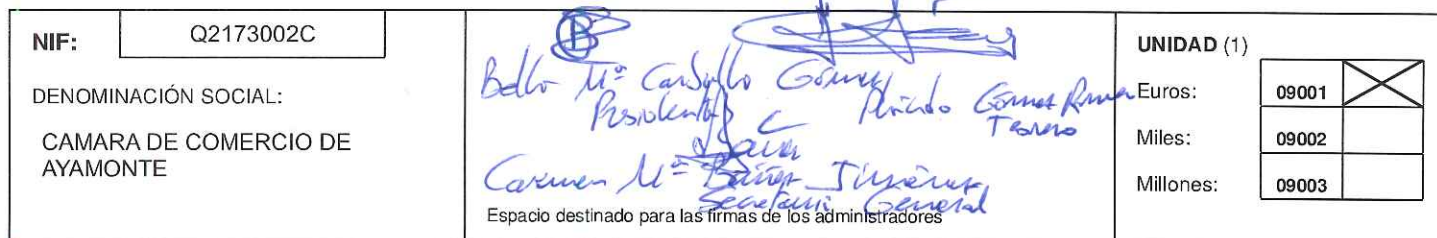 NIF: Q2173002C
DENOMINACIÓN SOCIAL:
CAMARA DE COMERCIO DE
AYAMONTE
Mª Carballo Gómez
Presidenta
Plácido Gómez
Tesorero
Carmen Mª Jiménez
Secretaria General
Espacio destinado para las firmas de los administradores
UNIDAD (1)
Euros: 09001
Miles: 09002
Millones: 09003